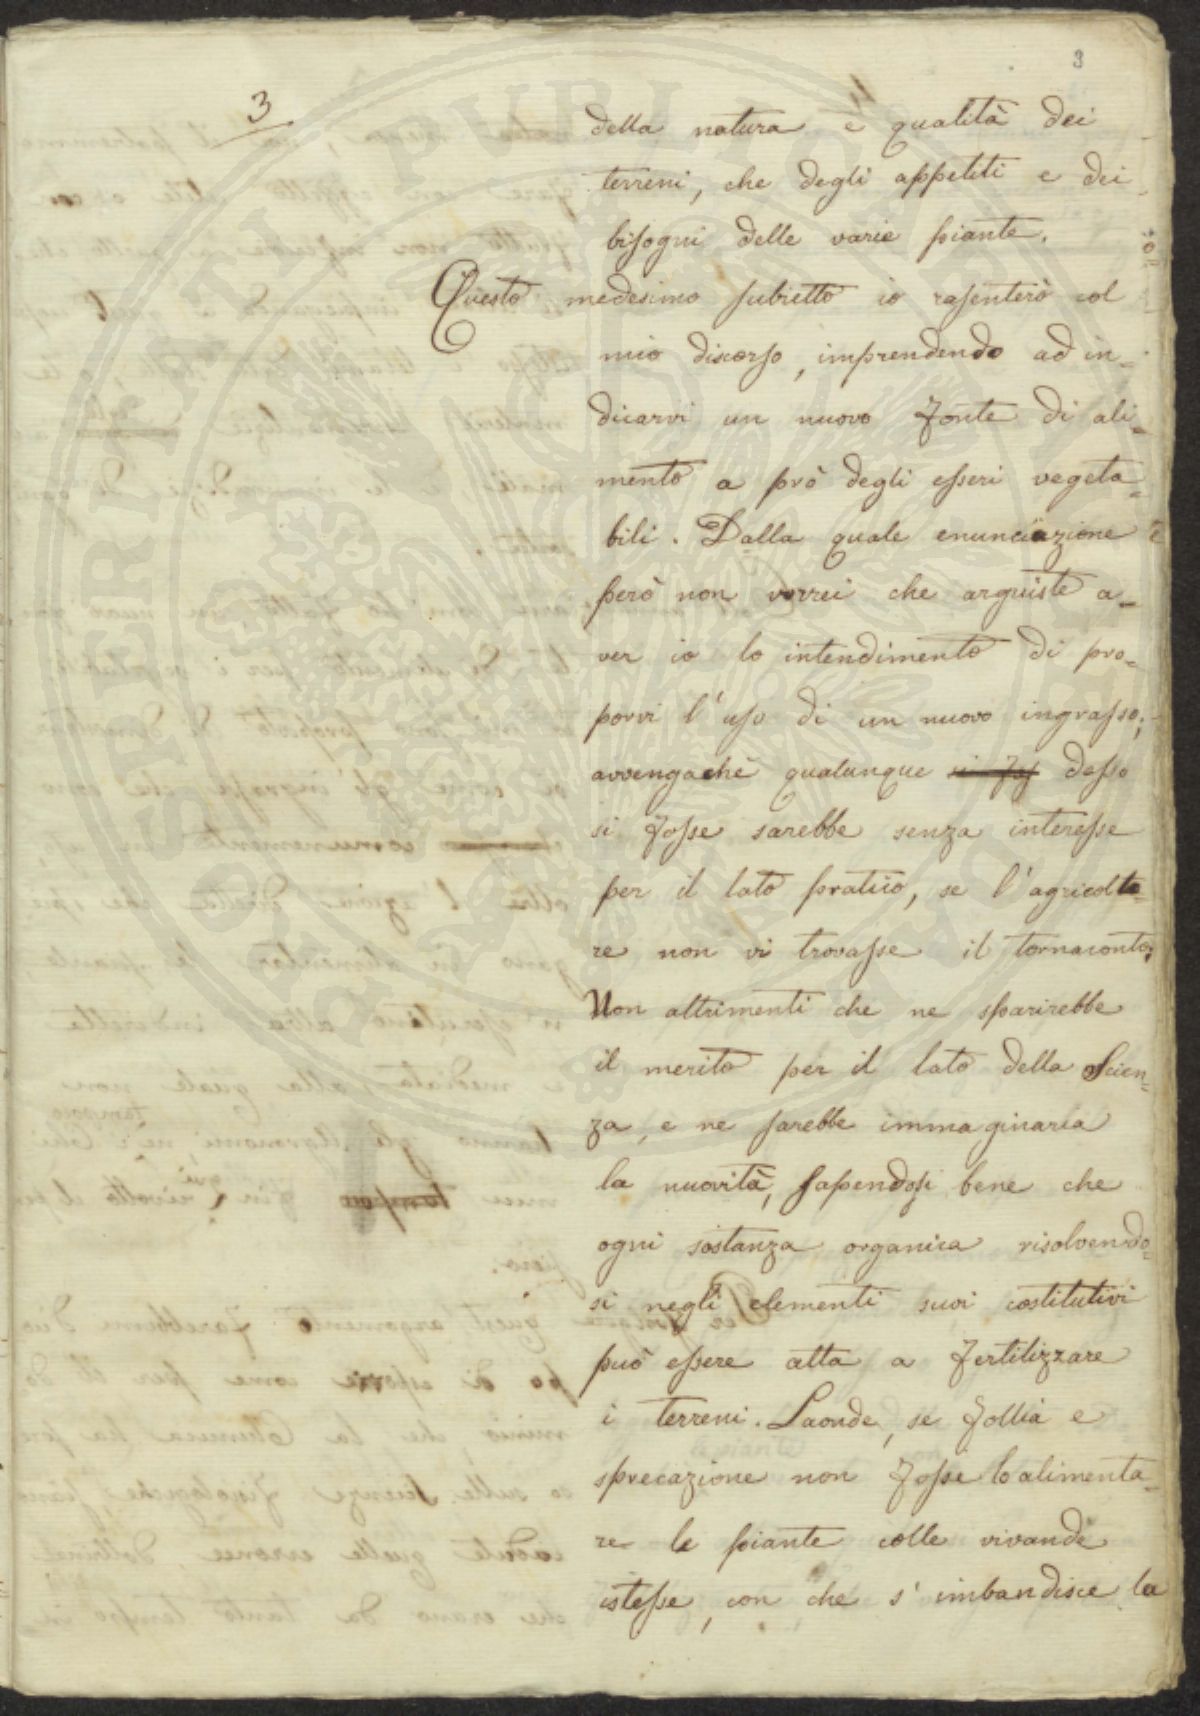 3
3
della natura e qualità dei
terreni, che degli appetiti e dei
bisogni delle varie piante.
Questo medesimo subietto io rasenterò col
mio discorso, imprendendo ad in=
dicarvi un nuovo fonte di ali=
mento a prò degli esseri vegeta=
bili. Dalla quale enunciazione
però non vorrei che arguiste a=
ver io lo intendimento di pro=
porvi l'uso di un nuovo ingrasso;
avvengachè qualunque si fos desso
si fosse sarebbe senza interesse
per il lato pratico, se l'agricolto=
re non vi trovasse il tornaconto;
Non altrimenti che ne sparirebbe
il merito per il lato della Scien=
za, e ne sarebbe immaginaria
la nuovità, sapendosi bene che
ogni sostanza organica risolvendo=
si negli elementi suoi costitutivi
può essere atta a fertilizzare
i terreni. Laonde, se follia e
sprecazione non fosse lo alimenta=
re le piante colle vivande
istesse, con che s'imbandisce la